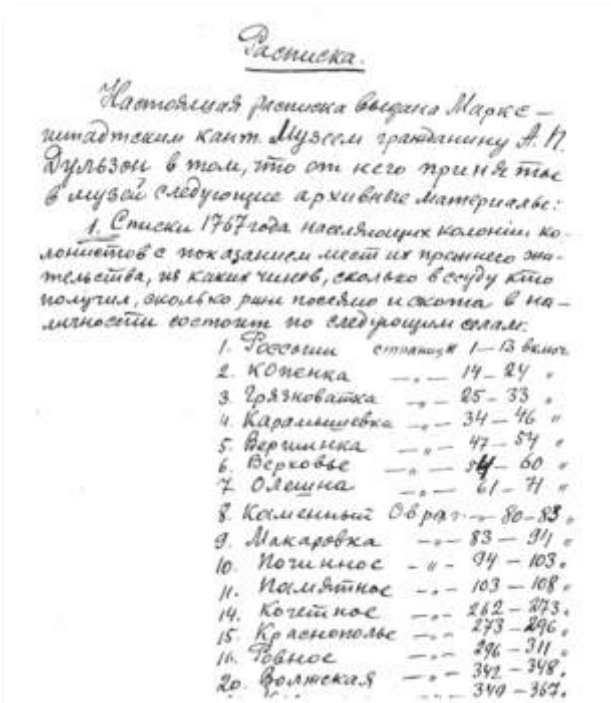 Расписка.
Настоящая расписка выдана Маркс-
штадтским кант. Музеем гражданину А. П.
Дульзон в том, что от него приняты
в музей следующие архивные материалы:
1. Списки 1767 года населяющих колонии ко-
лонистов с показанием мест их прежнего жи-
тельства, из каких чинов, сколько в ссуду кто
получил, сколько ржи посеяно и скота в на-
личности состоит по следующим селам:
1. Россоши страницы 1–13 включ.
2. Копенка –„– 14–24 „
3. Грязноватка –„– 25–33 „
4. Карамышевка –„– 34–46 „
5. Вершинка –„– 47–54 „
6. Верховье –„– 54–60 „
7 Олешна –„– 61–71 „
8. Каменный Овраг –„– 80–83 „
9. Макаровка –„– 83–94 „
10. Починное –„– 94–103 „
11. Памятное –„– 103–108 „
14. Кочетное –„– 262–273 „
15. Краснополье –„– 273–296 „
16. Ровное –„– 296–311 „
20. Волжская –„– 342–348 „
349–367 „